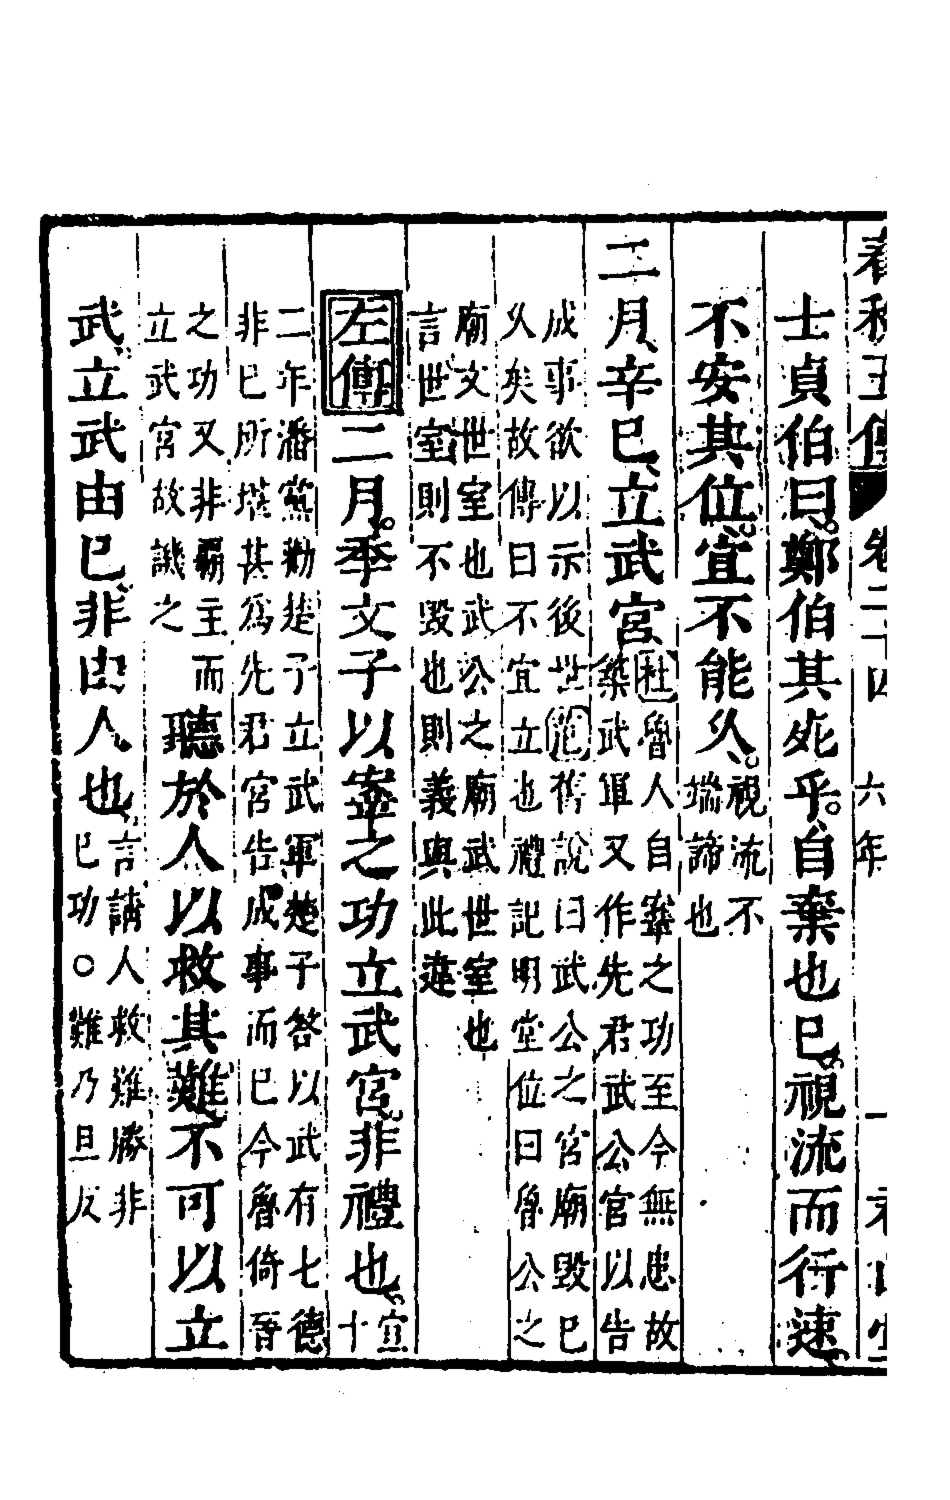 春秋五傳 卷二十四 六年 一
士貞伯曰鄭伯其死乎自棄也已視流而行速
不安其位宜不能久視流不
端諦也
二月辛巳立武宮杜魯人自鞌之功至今無患故
築武軍又作先君武公宮以告
成事欲以示後世范舊說曰武公之宮廟毀已
久矣故傳曰不宜立也禮記明堂位曰魯公之
廟文世室也武公之廟武世室也
言世室則不毀也則義與此違
左傳二月季文子以鞌之功立武宮非禮也宣
十
二年潘黨勸楚子立武軍楚子答以武有七德
非已所堪其為先君宮告成事而已今魯倚晉
之功又非霸主而
立武宮故譏之
聽於人以救其難不可以立
武立武由已非由人也言請人救難勝非
已功○難乃旦反